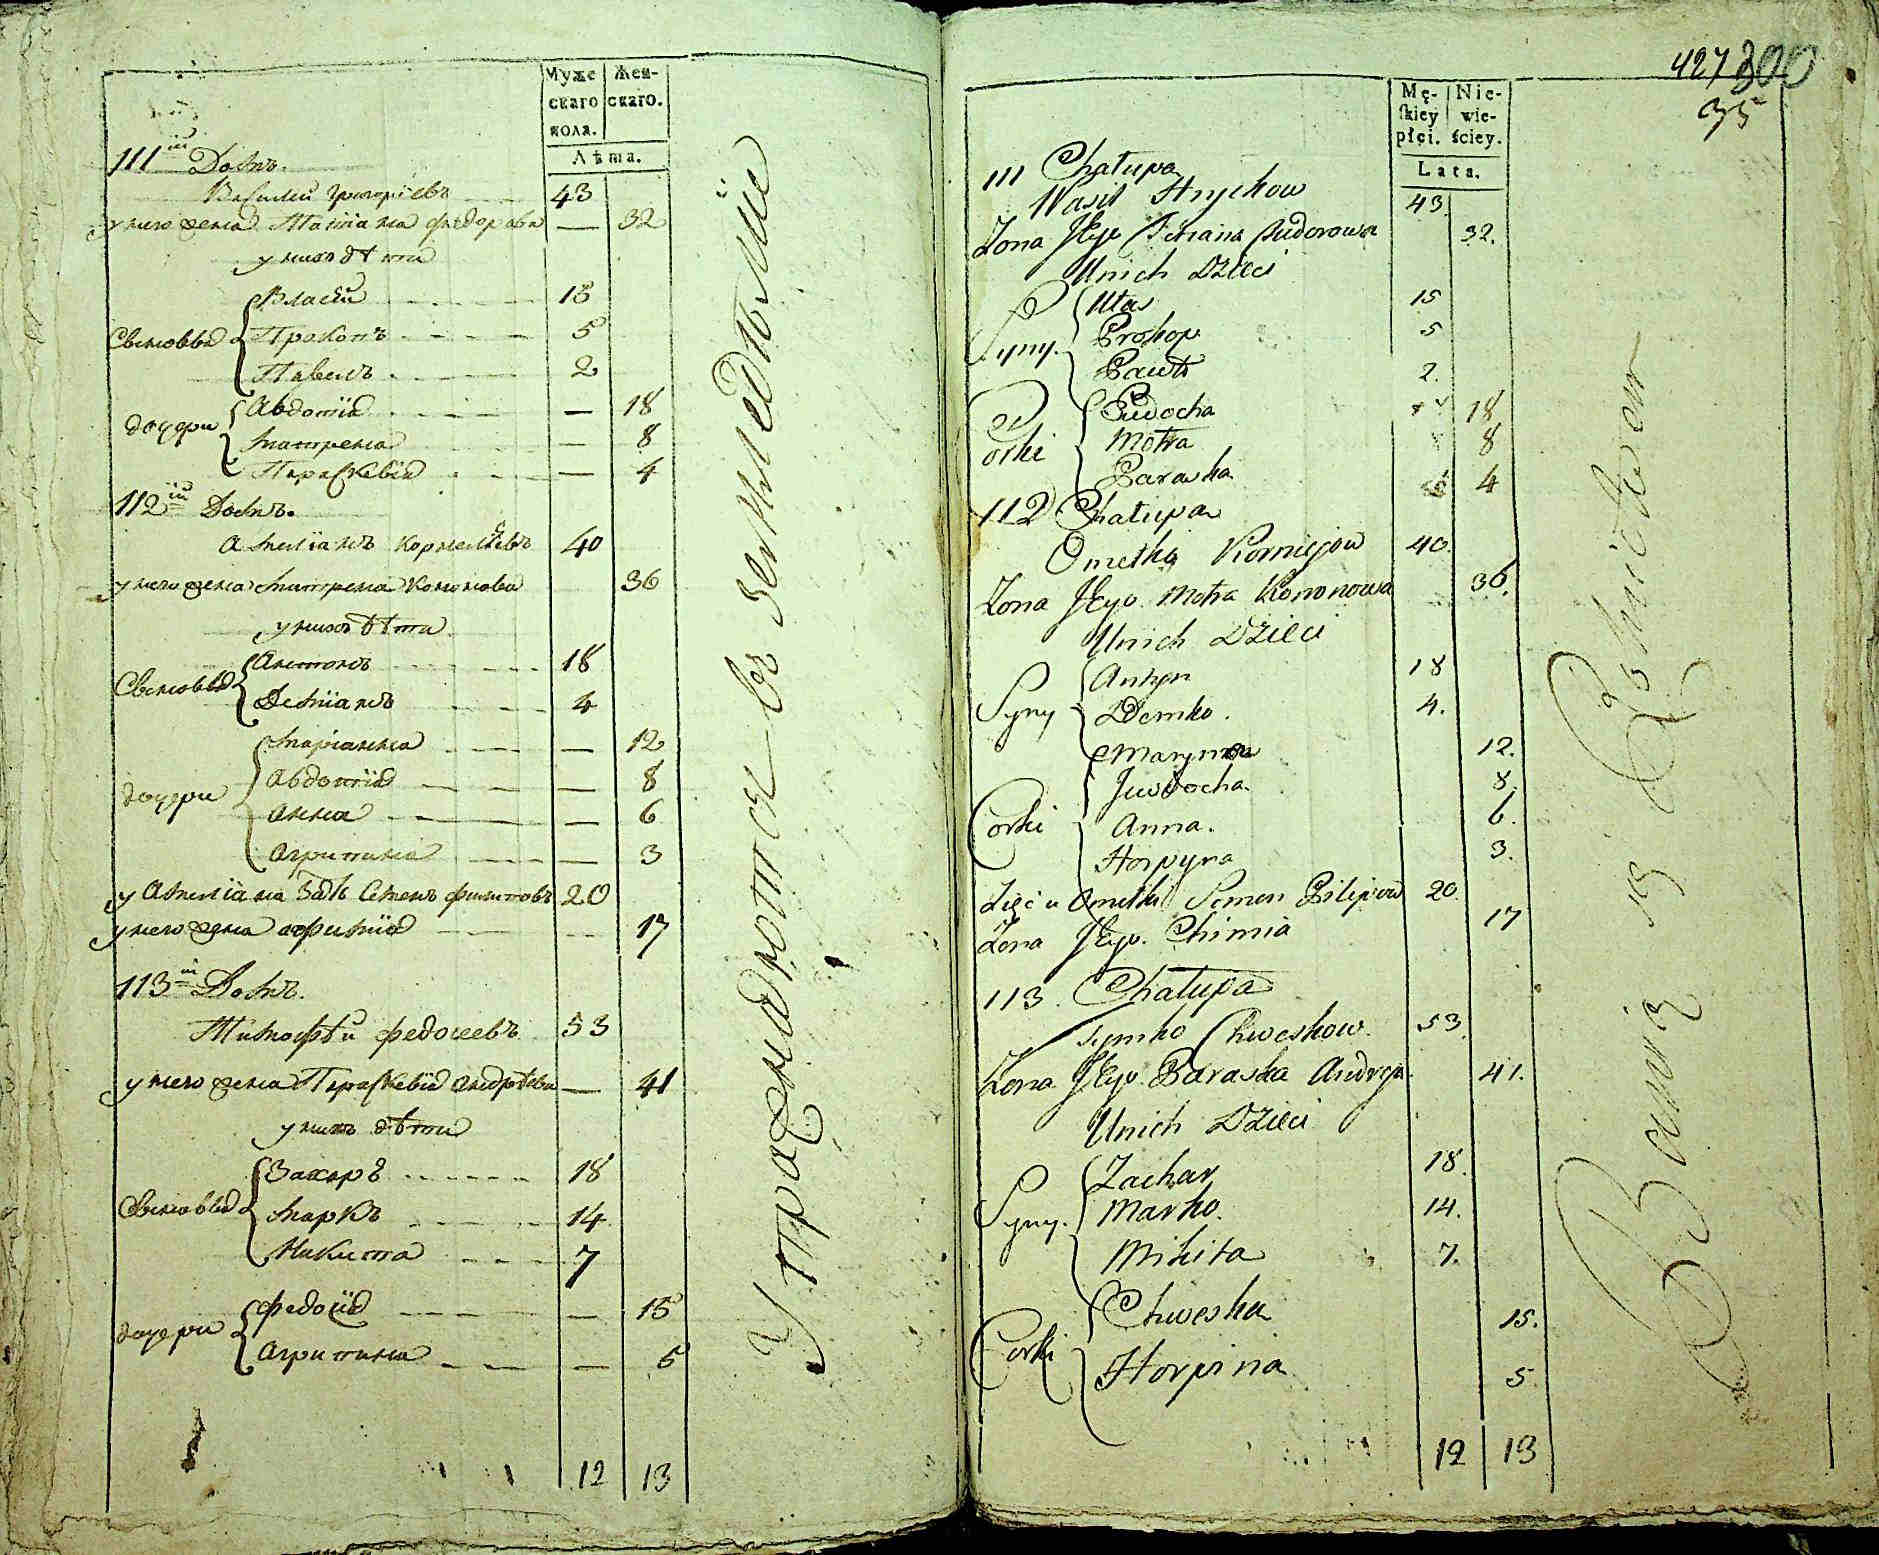 Муже
скаго
пола.
Жен-
скаго.
Лѣта.
111й Домъ.
Василий Григорiевъ 43
у него жена Татiана Федорова — 32
у нихъ дѣти
Сыновья
Власий 15
Прокопъ 5
Павелъ 2
дочери
Авдотiя — 18
Матрена — 8
Параскевiя — 4
112й Домъ.
Омелiанъ Корнелiевъ 40
у него жена Матрена Кононова 36
у нихъ дѣти
Сыновья
Антонъ 18
Демiанъ 4
дочери
Марiанна — 12
Авдотiя — 8
Анна — 6
Агрипина — 3
у Омелiана зять Семенъ Филиповъ 20
у него жена Афимiя 17
113й Домъ.
Тимофѣй Федосеевъ 53
у него жена Параскевiя Андрѣева — 41
у нихъ дѣти
Сыновья
Захаръ 18
Марко 14
Никита 7
дочери
Федосiя — 15
Агрипина — 5
12 13
Упражняются въ земледѣлiи
427 300
35
Mę-
skiey
płci.
Nie-
wie-
ściey.
Lata.
111 Chałupa
Wasil Hrychow 43.
Żona Jego Tetiana Fudorowa 32.
Unich Dzieci
Syny.
Ułas 15
Prokop 5
Pawło 2.
Corki
Ewdocha 18
Motra 8
Paraska 4
112 Chałupa
Omelko Korniejow 40.
Żona Jego Motra Kononowa 36.
Unich Dzieci
Syny
Antyn 18
Demko. 4.
Corki
Maryna 12.
Juwdocha 8.
Anna. 6.
Horpyna 3.
Zięć u Omelki Semen Pilipow 20.
Żona Jego. Chimia 17
113. Chałupa
Tymko Chweskow. 53
Żona Jego. Paraska Andrejo. 41.
Unich Dzieci
Syny.
Zachar 18.
Marko. 14.
Mikita 7.
Corki
Chweska 15.
Horpina 5
12 13
Bawią się Rolnictwem